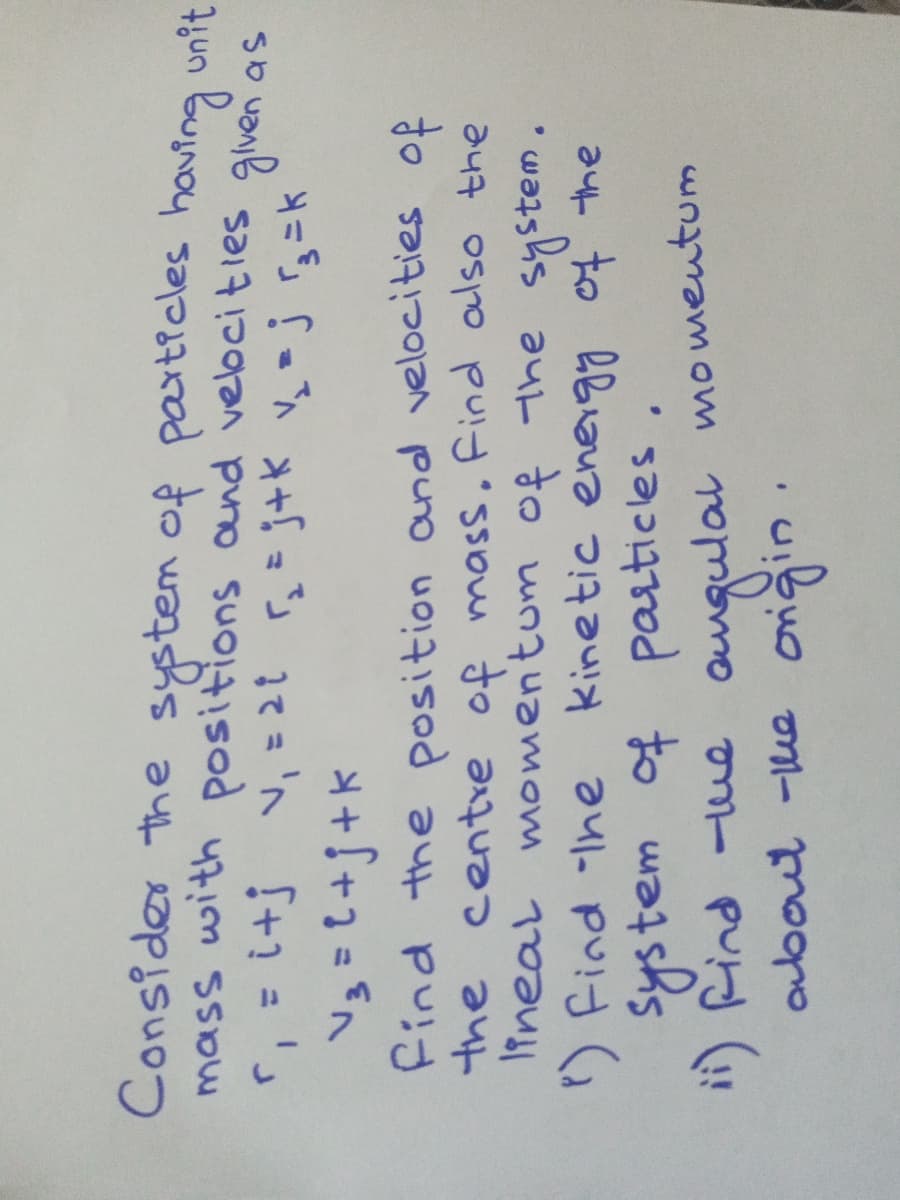 Consider the system of particles having unit
mass with positions and velocities given as
r₁ = i+j v₁ = 2i r₂ = j+k v₂ = j r₃ = k
v₃ = i+j+k
Find the position and velocities of
the centre of mass. Find also the
linear momentum of the system.
i) Find the kinetic energy of the
system of particles.
ii) Find the angular momentum
about the origin.